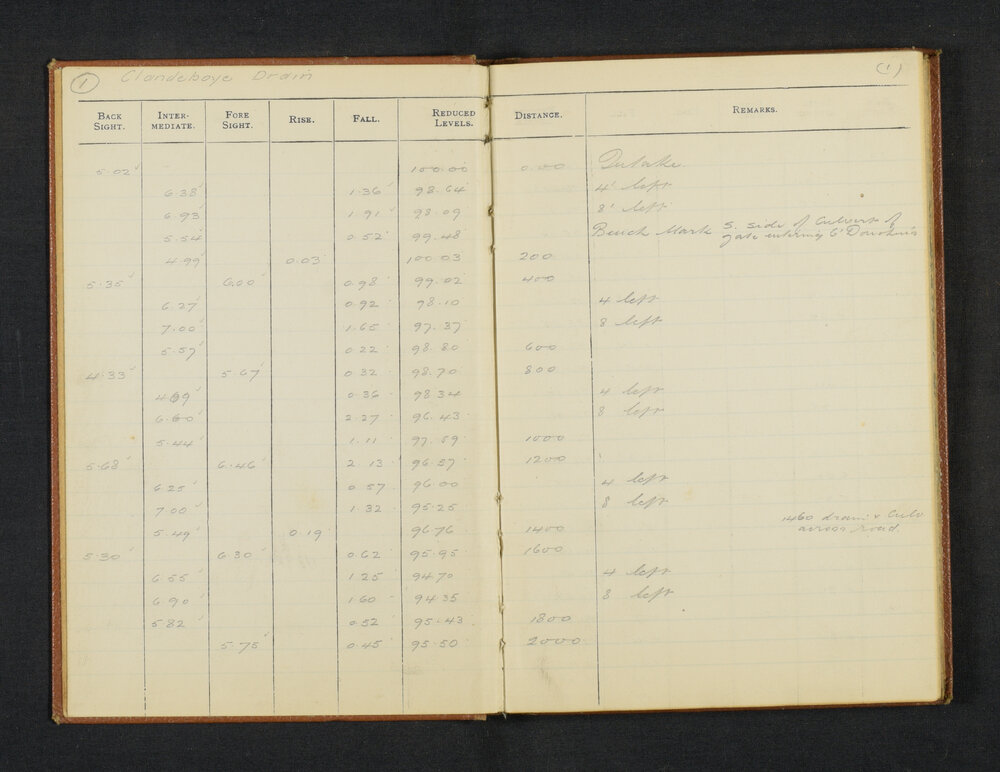 1 Clandeboye Drain (1)
BACK SIGHT. INTER-MEDIATE. FORE SIGHT. RISE. FALL. REDUCED LEVELS. DISTANCE. REMARKS.
5.02 100.00 0.00 Intake
6.38 1.36 98.64 4' left
6.93 1.91 98.09 8' left
5.54 0.52 99.48 Bench Mark S. side of Culvert of gate entering O'Donohu's
4.99 0.03 100.03 200
5.35 6.00 0.98 99.02 400
6.27 0.92 98.10 4 left
7.00 1.65 97.37 8 left
5.57 0.22 98.80 600
4.33 5.67 0.32 98.70 800
4.69 0.36 98.34 4 left
6.60 2.27 96.43 8 left
5.44 1.11 97.59 1000
5.68 6.46 2.13 96.57 1200
6.25 0.57 96.00 4 left
7.00 1.32 95.25 8 left
5.49 0.19 96.76 1400 1460 drain & Culv across road.
5.30 6.30 0.62 95.95 1600
6.55 1.25 94.70 4 left
6.90 1.60 94.35 8 left
5.82 0.52 95.43 1800
5.75 0.45 95.50 2000